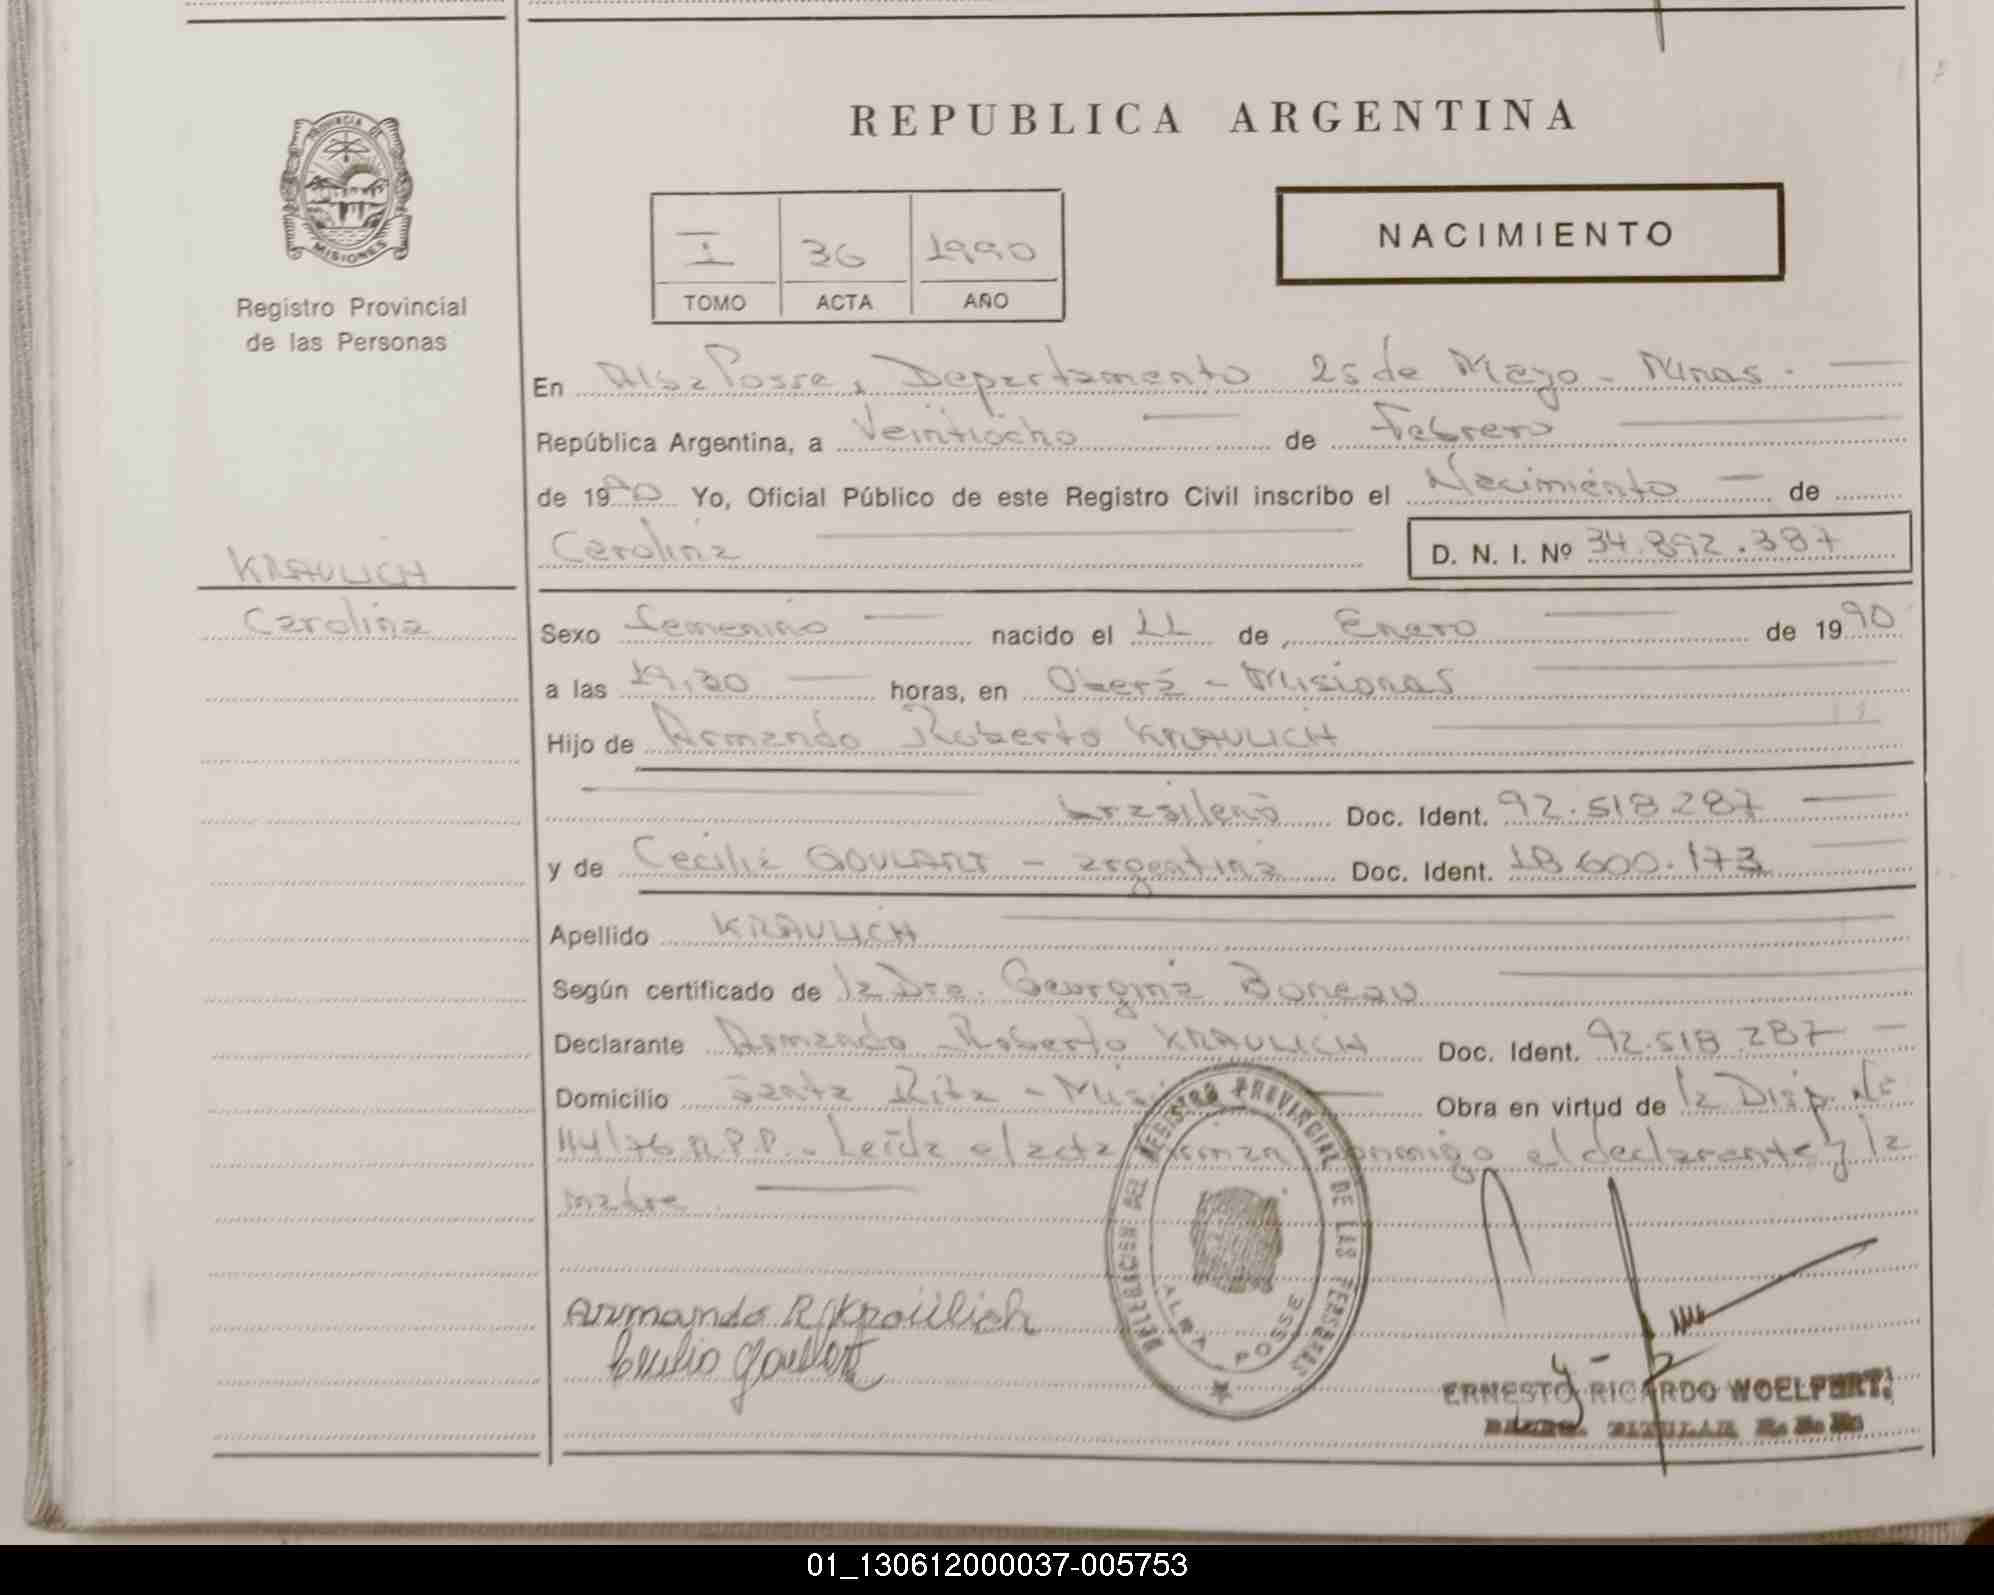 REPUBLICA ARGENTINA
PROVINCIA DE MISIONES
Registro Provincial
de las Personas
I 36 1990
TOMO ACTA AÑO
NACIMIENTO
En Alba Posse, Departamento 25 de Mayo - Mnas.
República Argentina, a Veintiocho de Febrero
de 1990 Yo, Oficial Público de este Registro Civil inscribo el Nacimiento de
Carolina D. N. I. Nº 34.892.387
KRAULICH
Carolina
Sexo femenino nacido el 11 de Enero de 1990
a las 19,30 horas, en Oberá - Misiones
Hijo de Armando Roberto KRAULICH
brasileño Doc. Ident. 92.518.287
y de Cecilia GOULART - argentina Doc. Ident. 18.600.173
Apellido KRAULICH
Según certificado de la Dra. Georgina Boneau
Declarante Armando Roberto KRAULICH Doc. Ident. 92.518.287
Domicilio Santa Rita - Obra en virtud de la Disp. Nº
114/76 R.P.P. - Leída el acta firman conmigo el declarante y la
madre
DELEGACION DEL REGISTRO PROVINCIAL DE LAS PERSONAS
ALBA POSSE
Armando R Kraülich
Cecilia Goulart
ERNESTO RICARDO WOELFERT
TITULAR
01_130612000037-005753